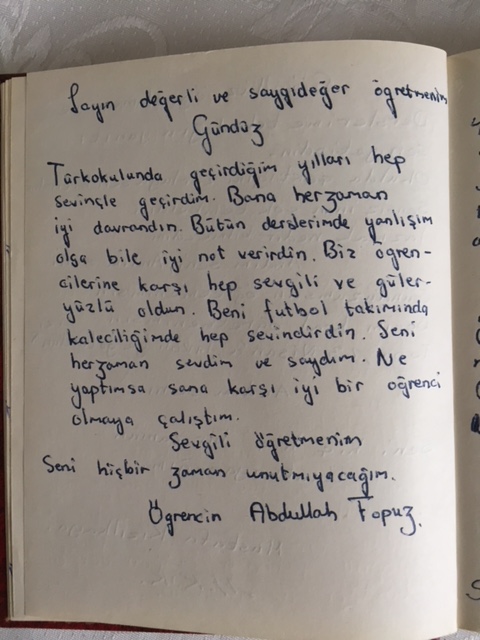 Sayın değerli ve saygıdeğer öğretmenim
Gündüz
Türkokulunda geçirdiğim yılları hep
sevinçle geçirdim. Bana herzaman
iyi davrandın. Bütün derslerimde yanlışım
olsa bile iyi not verirdin. Biz öğren-
cilerine karşı hep sevgili ve güler-
yüzlü oldun. Beni futbol takımında
kaleciliğimde hep sevindirdin. Seni
herzaman sevdim ve saydım. Ne
yaptımsa sana karşı iyi bir öğrenci
olmaya çalıştım.
Sevgili öğretmenim
Seni hiçbir zaman unutmıyacağım.
Öğrencin Abdullah Topuz.